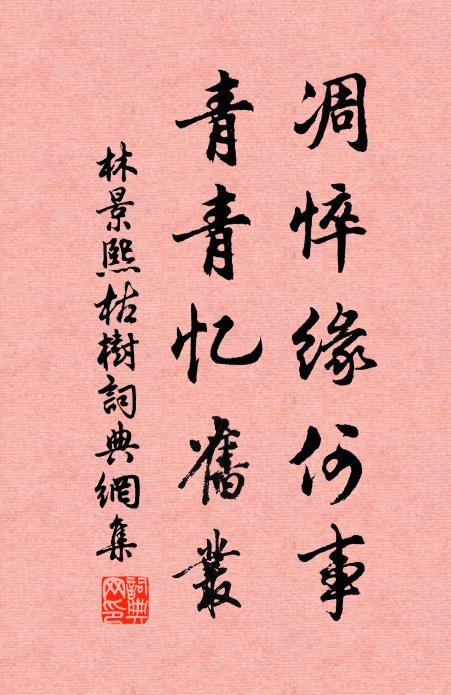 凋悴缘何事
青青忆舊叢
林景熙枯樹詞典網集
詞典网印